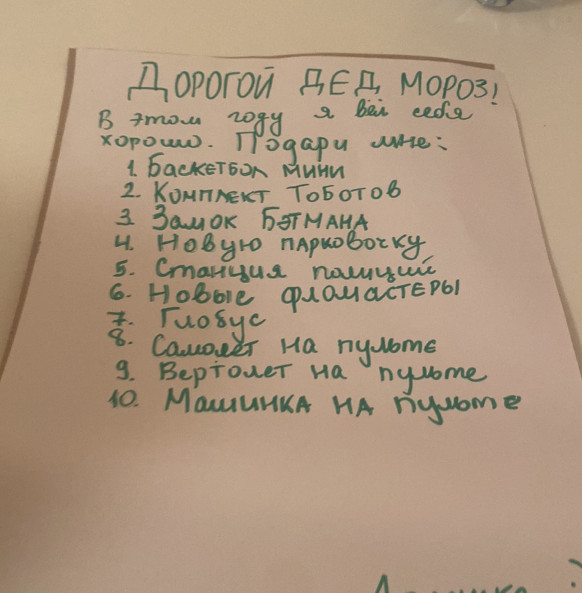 ДОРОГОЙ ДЕД МОРОЗ!
В этом году я вёл себя
хорошо. Подари мне:
1. БАСКЕТБОЛ МИНИ
2. КОМПЛЕКТ ТОБОТОВ
3. ЗАМОК БЭТМАНА
4. НОВУЮ ПАРКОВОЧКУ
5. Станция полиций
6. НОВЫЕ ФЛОМАСТЕРЫ
7. Глобус
8. Самолёт на пульте
9. Вертолет на пульте
10. МАШИНКА НА пульте